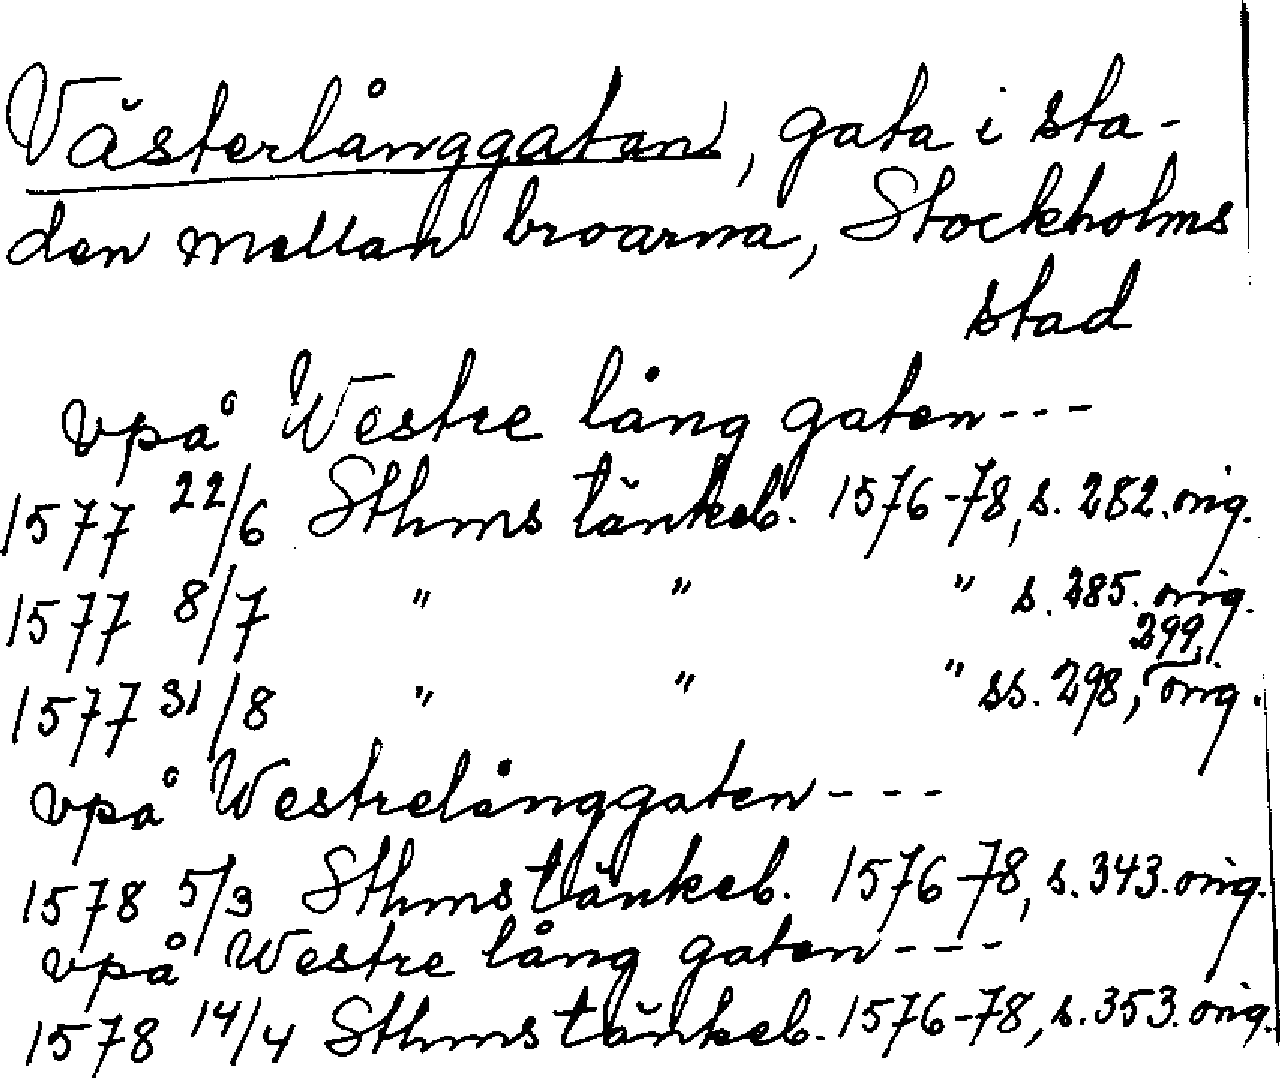 Västerlånggatan, gata i sta-
den mellan broarna, Stockholms
stad
vpå Westre lång gaten---
1577 22/6 Sthms tänkeb. 1576-78, s. 282. orig.
1577 8/7 " " " s. 285. orig.
1577 31/8 " " " ss. 298, 299, orig.
vpå Westrelånggaten---
1578 5/3 Sthms tänkeb. 1576-78, s. 343. orig.
vpå Westre lång gaten---
1578 14/4 Sthms tänkeb. 1576-78, s. 353. orig.